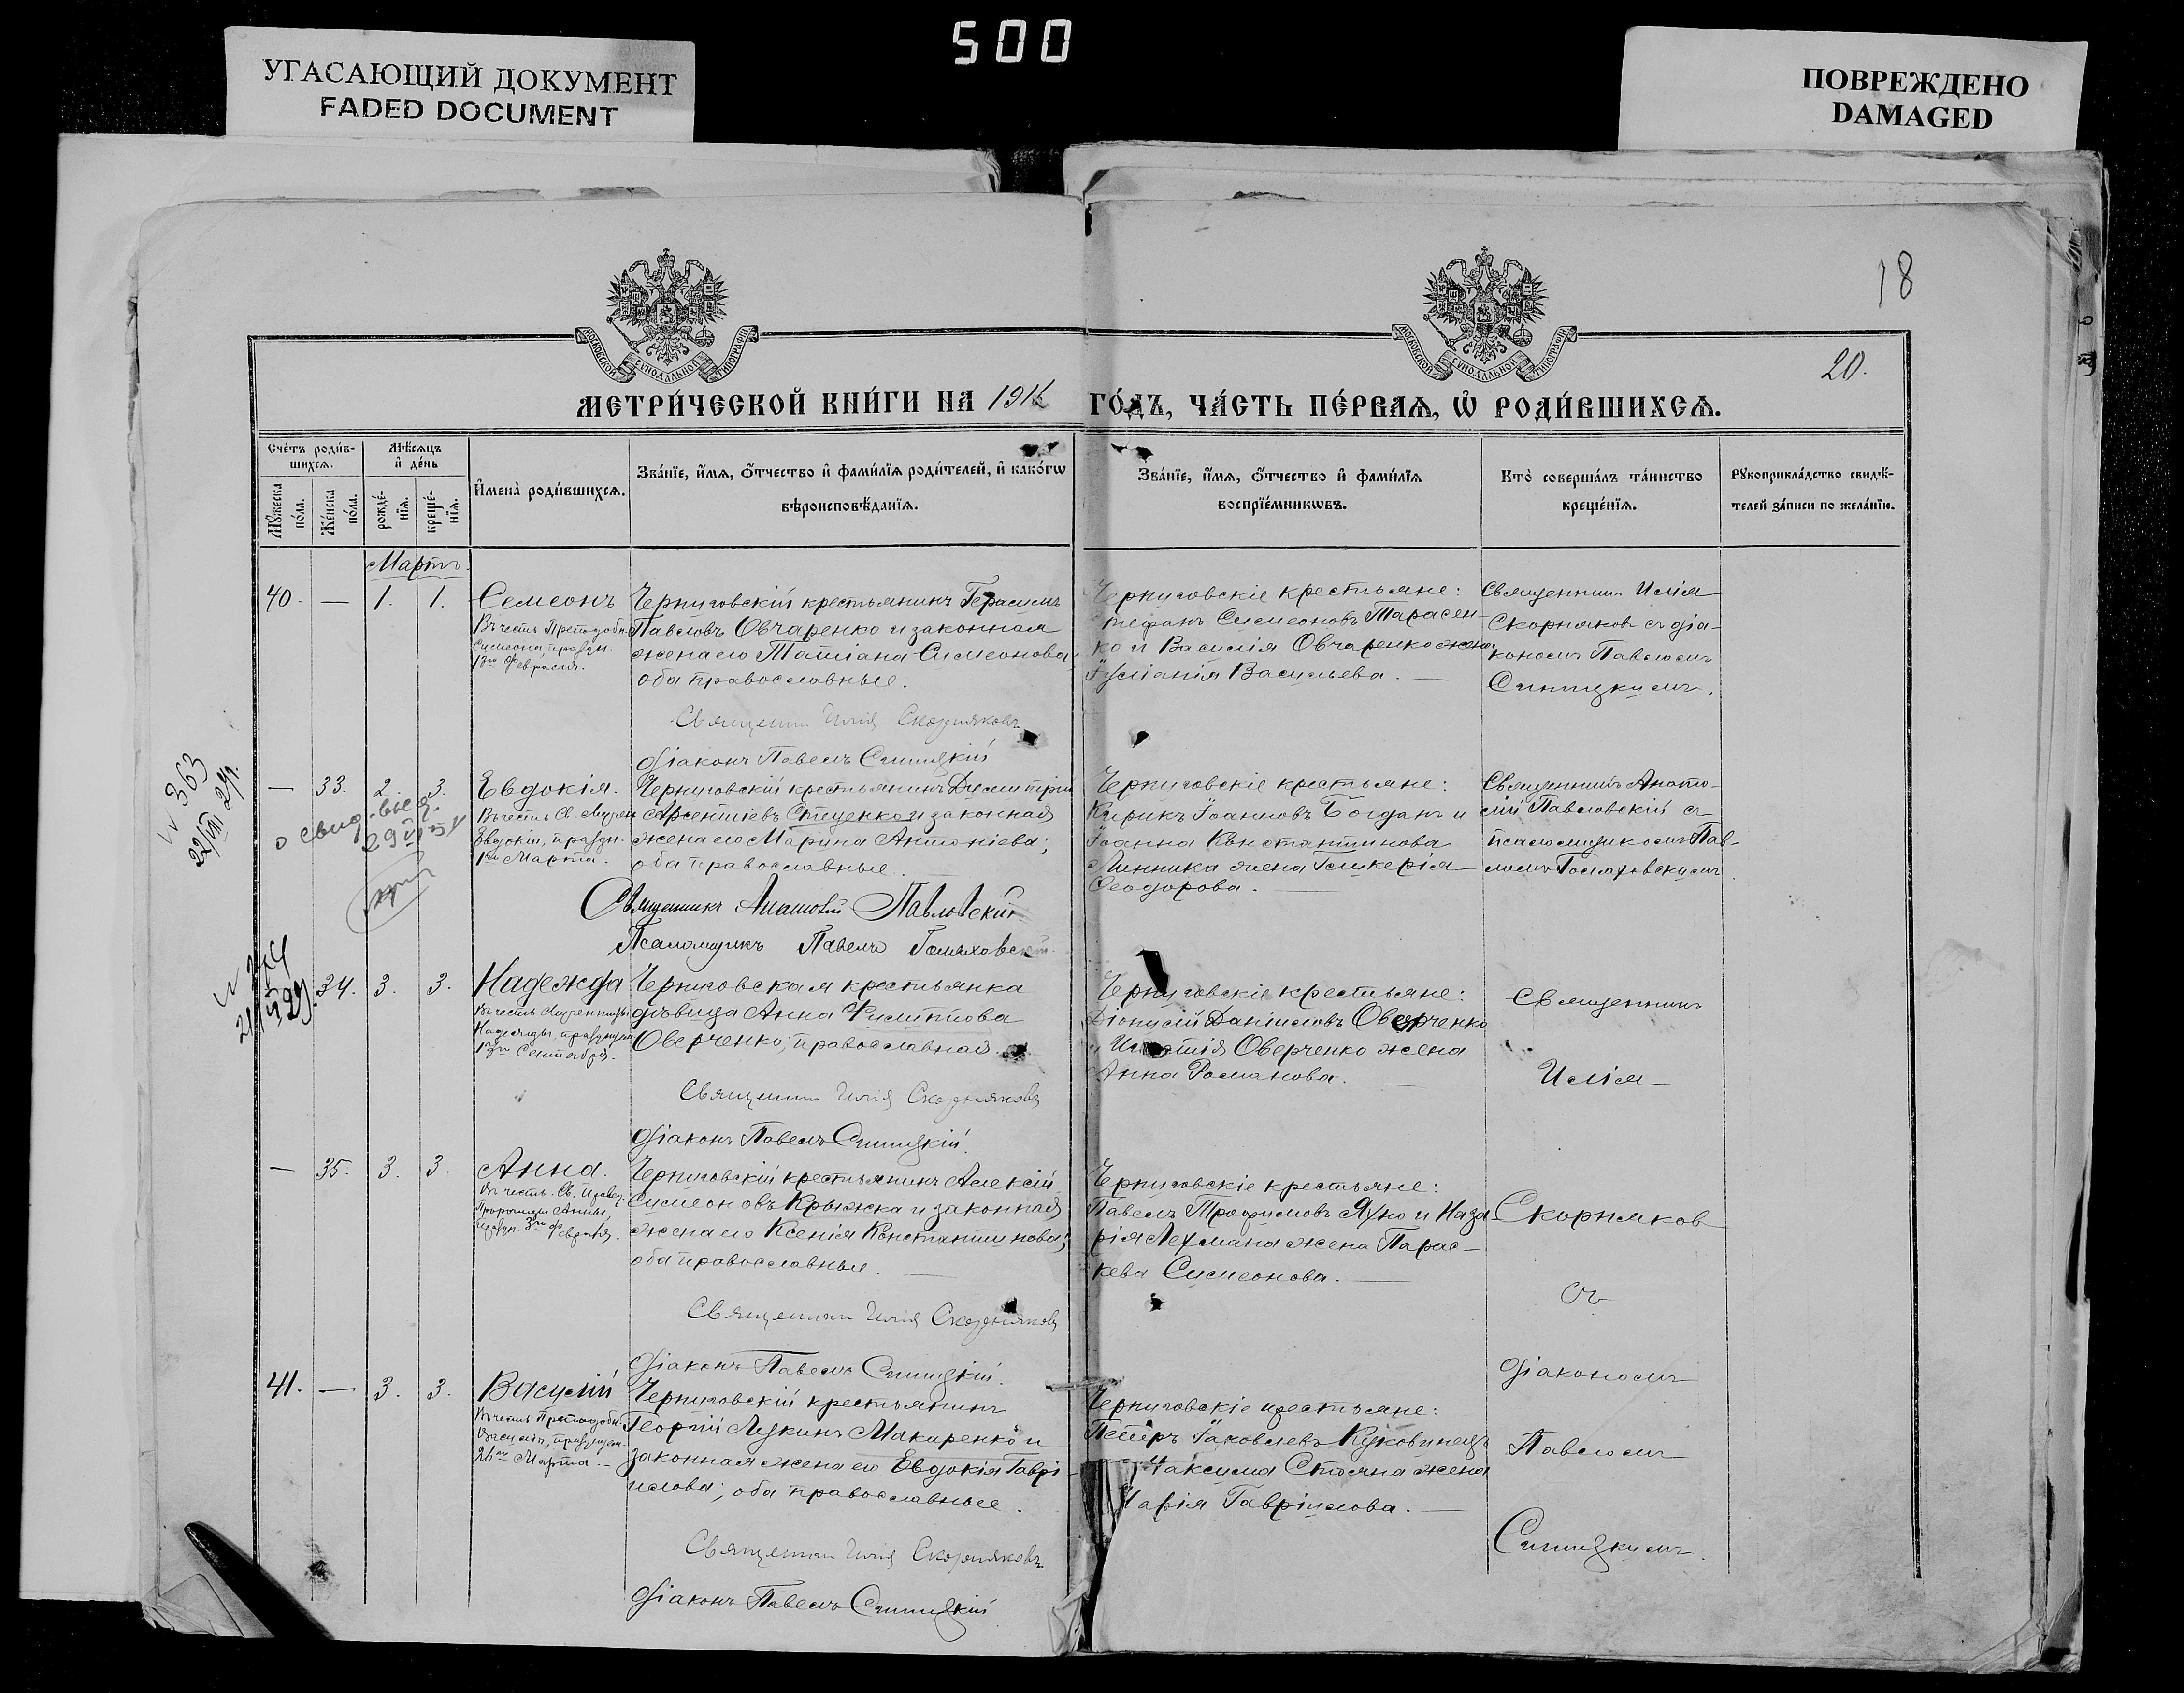 500
УГАСАЮЩИЙ ДОКУМЕНТ
FADED DOCUMENT
ПОВРЕЖДЕНО
DAMAGED
18
МОСКОВСКОЙ СѴНОДАЛЬНОЙ ТИПОГРАФІИ
МОСКОВСКОЙ СѴНОДАЛЬНОЙ ТИПОГРАФІИ
20.
МЕТРИ́ЧЕСКОЙ КНИ́ГИ НА 1916 ГО́ДЪ, ЧА́СТЬ ПЕ́РВАѦ, Ѡ҆ РОДИ́ВШИХСѦ.
Сче́тъ роди́в-
шихсѧ.
Мѣ́сѧцъ
и҆ де́нь
Мꙋ́жеска
по́ла.
Же́нска
по́ла.
рожде́-
нїѧ.
креще́-
нїѧ.
И҆мена̀ роди́вшихсѧ.
Зва́нїе, и҆́мѧ, ѻ҆́тчество и҆ фами́лїѧ роди́телей, и҆ како́гѡ
вѣроисповѣ́данїѧ.
Зва́нїе, и҆́мѧ, ѻ҆́тчество и҆ фами́лїѧ
воспрїе́мникѡвъ.
Кто̀ соверша́лъ та́инство
креще́нїѧ.
Рꙋкоприкла́дство свидѣ́-
телей за́писи по жела́нїю.
Мартъ.
40. — 1. 1.
Семеонъ
Въ честь Преподобн.
Симеона, праздн.
1го Февраля.
Черниговскій крестьянинъ Герасимъ
Павловъ Овчаренко и законная
жена его Татіана Симеонова,
оба православные.
Священник Илія Скорняковъ
Діаконъ Павелъ Синицкій
Черниговскіе крестьяне:
тефанъ Симеоновъ Тарасен-
ко и Василія Овчаренко жена
Іуліанія Васильева. —
Священник Илія
Скорняков съ діа-
кономъ Павломъ
Синицкимъ.
N 363
22/VII 24г.
о свид. выд.
29
— 33. 2. 3.
Евдокія.
Въ честь Св. Мучен.
Евдокіи, праздн.
1го Марта.
Черниговскій крестьянинъ Димитрій
Арсентіевъ Стеценко и законная
жена его Марина Антоніева;
оба православные.
Священникъ Анатолій Павловскій
Псаломщикъ Павелъ Голяховскій
Черниговскіе крестьяне:
Кирикъ Іоанновъ Богданъ и
Іоанна Константинова
Линника жена Гликерія
Ѳеодорова. —
Священникъ Анато-
лій Павловскій съ
псаломщикомъ Пав-
ломъ Голяховскимъ.
34. 3. 3.
Надежда
Въ честь Мученицы
Надежды, празднуем.
17го Сентября.
Черниговская крестьянка
дѣвица Анна Филиппова
Оверченко, православная.
Священник Илія Скорняковъ
Діаконъ Павелъ Синицкій.
Черниговскіе крестьяне:
Діонисій Даніиловъ Оверченко
и Игнатія Оверченко жена
Анна Романова. —
Священникъ
Илія
— 35. 3. 3.
Анна.
Въ честь Св. Правед.
Пророчицы Анны,
праздн. 3го Февраля.
Черниговскій крестьянинъ Алексій
Симеоновъ Крыжка и законная
жена его Ксенія Константинова;
оба православные. —
Священник Илія Скорняковъ
Діаконъ Павелъ Синицкій.
Черниговскіе крестьяне:
Павелъ Трофимовъ Яхно и Наза-
рія Лехмана жена Парас-
кева Симеонова. —
Скорняков
съ
діакономъ
41. — 3. 3.
Василій
Въ честь Преподобн.
Василія, празднуем.
26го Марта. —
Черниговскій крестьянинъ
Георгій Лукинъ Макаренко и
законная жена его Евдокія Гаврі-
илова; оба православные.
Священник Илія Скорняковъ
Діаконъ Павелъ Синицкій
Черниговскіе крестьяне:
Петръ Іаковлевъ Куковинецъ
Максима Стояна жена
Марія Гавріилова. —
Павломъ
Синицкимъ.